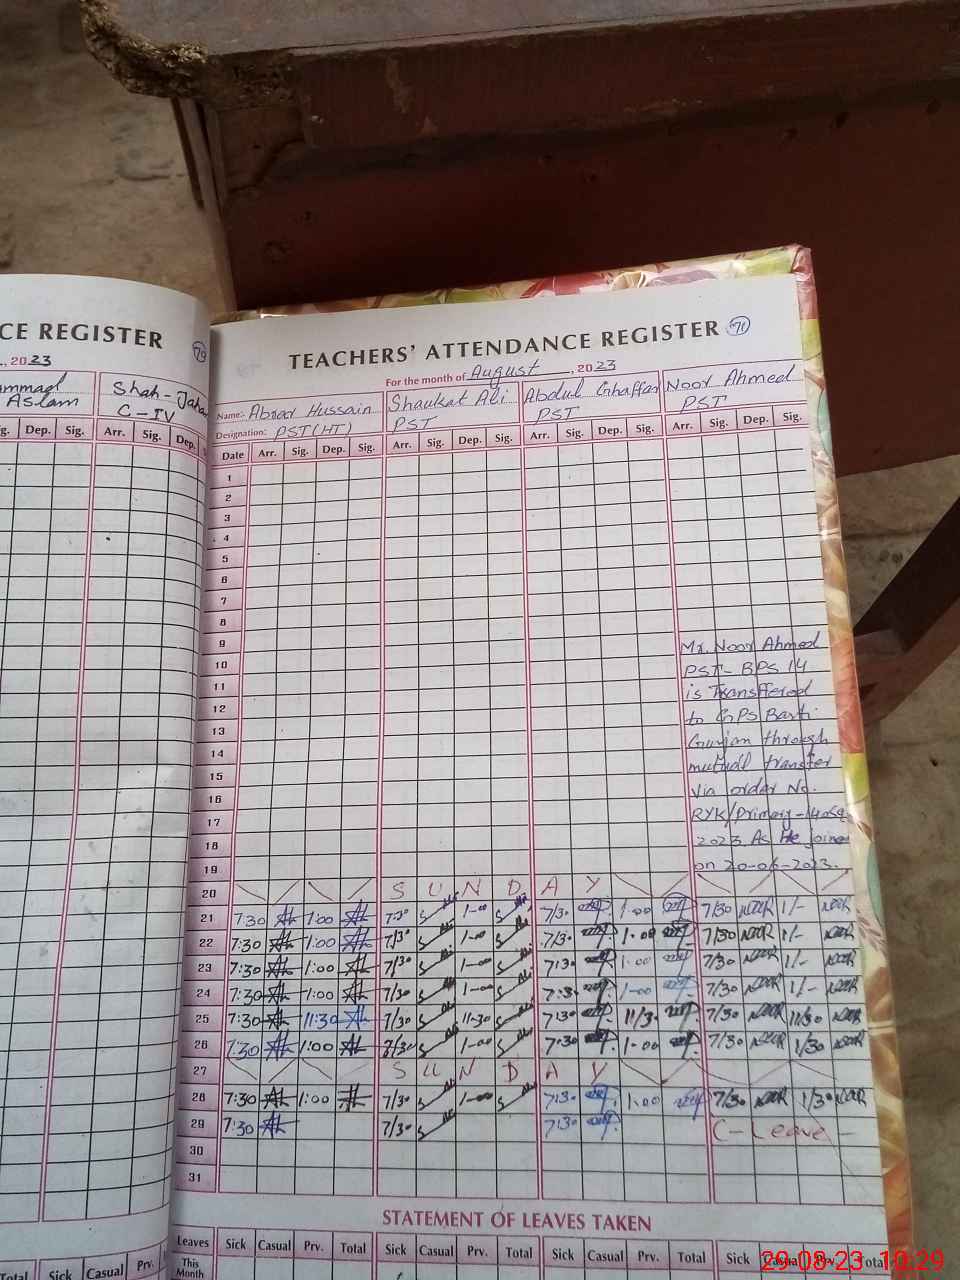 CE REGISTER
, 2023
Aslam
Shah-Jahan
C-IV
g. Dep. Sig. Arr. Sig. Dep.
TEACHERS' ATTENDANCE REGISTER 71
For the month of August, 2023
Name:- Abrar Hussain Shaukat Ali Abdul Ghaffar Noor Ahmed
Designation: PST(HT) PST PST PST
Date Arr. Sig. Dep. Sig. Arr. Sig. Dep. Sig. Arr. Sig. Dep. Sig. Arr. Sig. Dep. Sig.
1
2
3
4
5
6
7
8
9 Mr. Noor Ahmed
10 PST- BPS 14
11 is Transffered
12 to GPS Basti
13 through
14 mutual transfer
15 via order No.
16 RYK/Primary-
17 2023. As He joine
18 on 20-06-2023.
19
20 S U N D A Y
21 7:30 1:00 7/30 1-00 7/30 1-00 7/30 NOOR 1/- NOOR
22 7:30 1:00 7/30 1-00 7/30 1-00 7/30 NOOR 1/- NOOR
23 7:30 1:00 7/30 1-00 7:30 1-00 7/30 NOOR 1/- NOOR
24 7:30 1:00 7/30 1-00 7:30 1-00 7/30 NOOR 1/- NOOR
25 7:30 11:30 7/30 11-30 7:30 11/30 7/30 NOOR 11/30 NOOR
26 7:30 1:00 7/30 1-00 7:30 1-00 7/30 NOOR 1/30 NOOR
27 S U N D A Y
28 7:30 1:00 7/30 1-00 7:30 1:00 7/30 NOOR 1/30 NOOR
29 7:30 7/30 7:30 C-Leave-
30
31
STATEMENT OF LEAVES TAKEN
Leaves Sick Casual Prv. Total Sick Casual Prv. Total Sick Casual Prv. Total Sick Casual Prv. Total
This
Month
Total Sick Casual Prv.
29-08-23 10:29